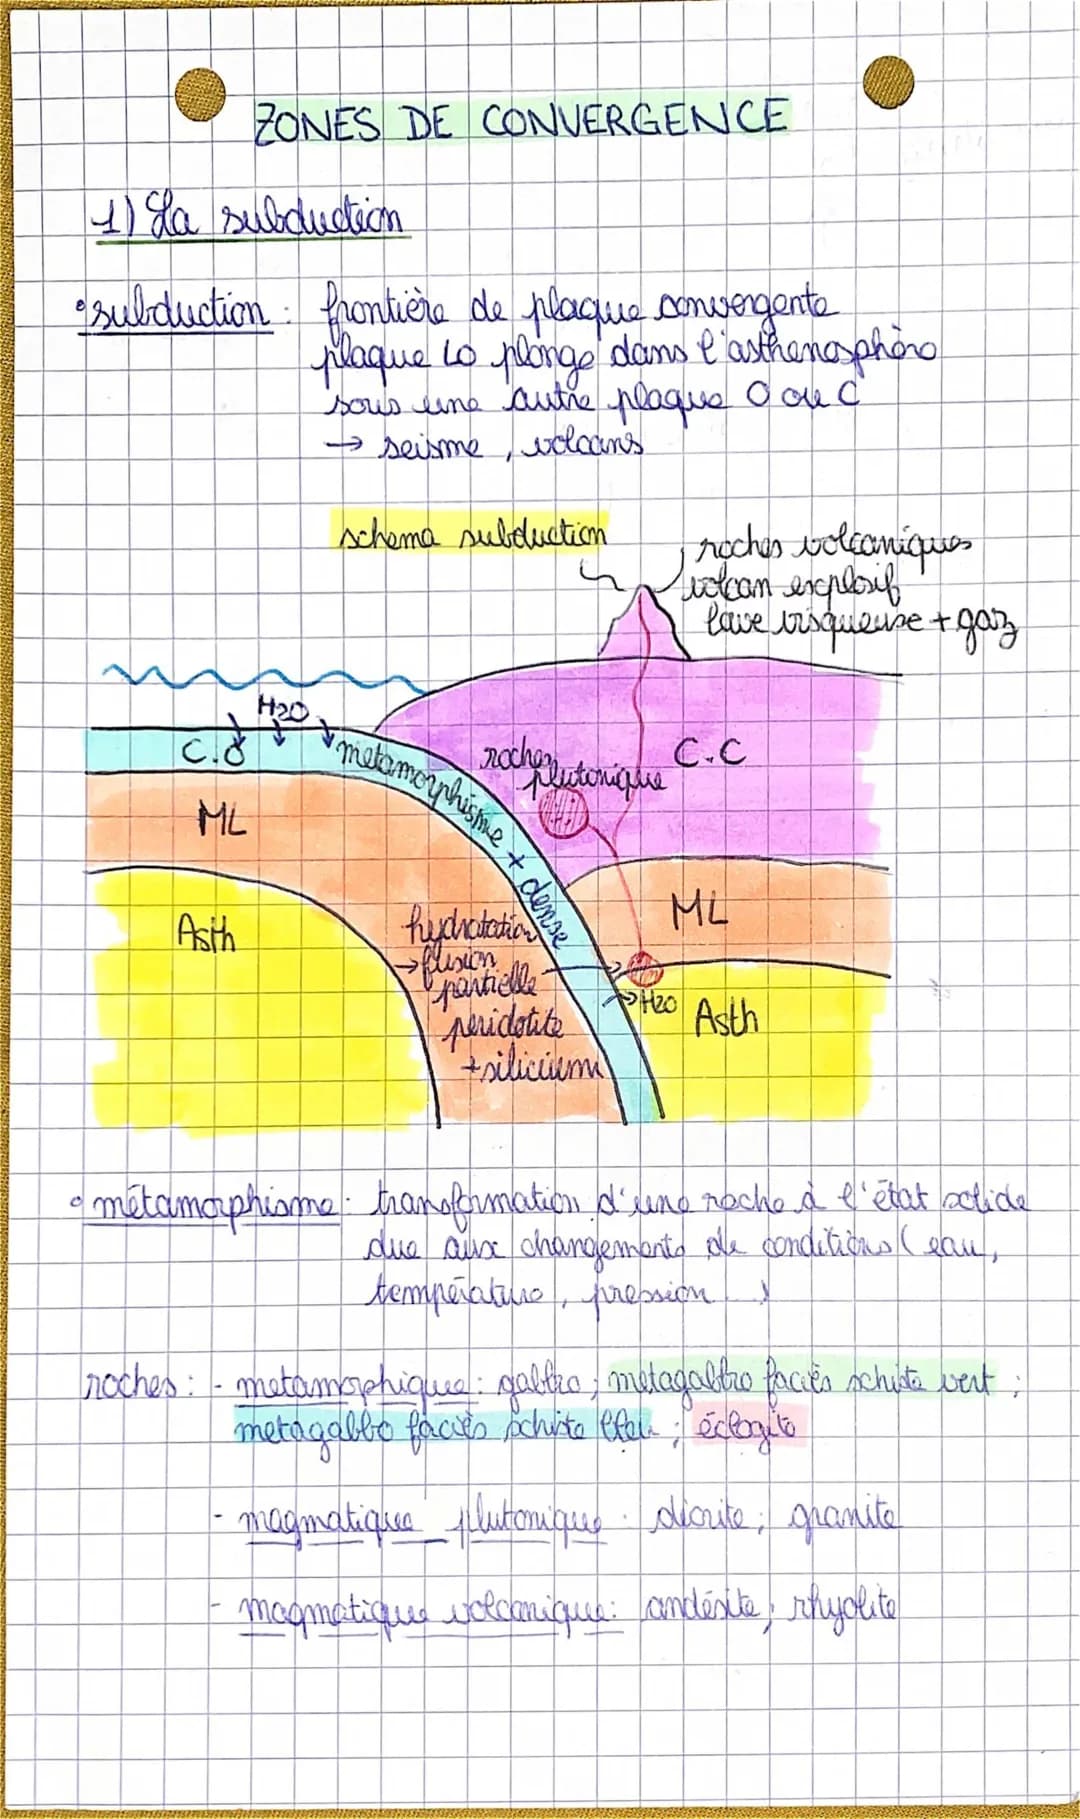 ZONES DE CONVERGENCE
1) La subduction
subduction : frontière de plaque convergente
plaque LO plonge dans l'asthénosphère
sous une autre plaque O ou C
→ seisme, volcans
schema subduction
roches volcaniques
volcan explosif
lave visqueuse + gaz
H2O
C.O
metamorphisme + dense
roches
plutonique
C.C
ML
Asth
hydratation
→ fusion
partielle
peridotite
+ silicium
ML
H2O
Asth
métamorphisme : transformation d'une roche à l'état solide
due aux changements de conditions (eau,
température, pression...)
roches : - metamorphique : gabbro ; metagabbro faciès schiste vert ;
metagabbo faciès schiste bleu ; éclogite
- magmatique plutonique : diorite ; granite
- magmatique volcanique : andésite ; rhyolite